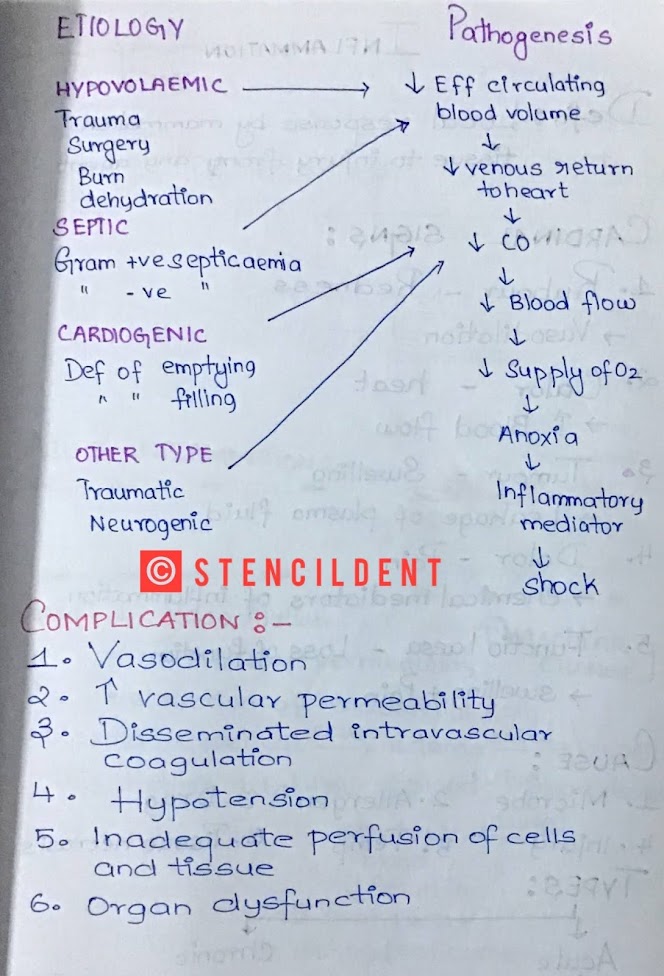 ETIOLOGY
HYPOVOLAEMIC →
Trauma
Surgery
Burn
dehydration
SEPTIC
Gram +ve septicaemia
" -ve "
CARDIOGENIC
Def of emptying
" " filling
OTHER TYPE
Traumatic
Neurogenic
Pathogenesis
↓ Eff circulating
blood volume
↓
↓ venous return
to heart
↓
↓ CO
↓
↓ Blood flow
↓
↓ Supply of O2
↓
Anoxia
↓
Inflammatory
mediator
↓
shock
© STENCILDENT
COMPLICATION :-
1. Vasodilation
2. ↑ vascular permeability
3. Disseminated intravascular
coagulation
4. Hypotension
5. Inadequate perfusion of cells
and tissue
6. Organ dysfunction